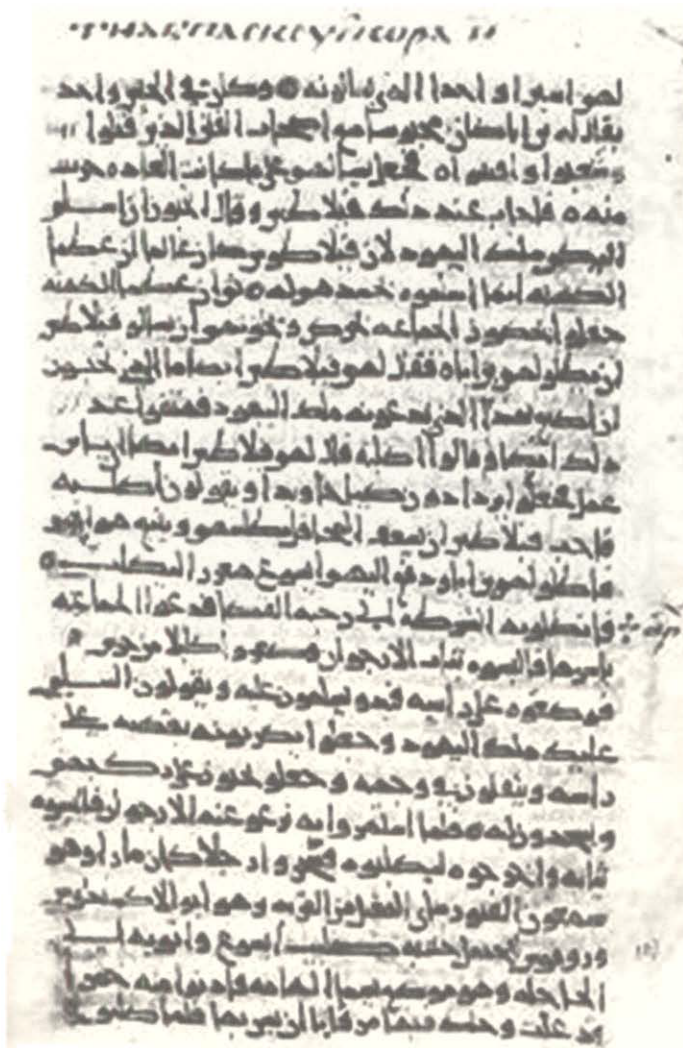 لهم اسيرا واحدا الذي يسالونه وكان في الحبس واحد
يقال له براباس كان محبوسا مع اصحاب الفتن الذين قتلوا
فجعل يسالهم على ما كانت العاده
منه فاجاب عند ذلك فيلاطس وقال اتحبون ان اسلم
اليكم ملك اليهود لان فيلاطوس كان عالما ان عظما
الكهنه انما اسلموه حسد هوله ثم ان عظما الكهنه
جعلو يحضون الجماعه ان يسالو فيلاطس
ان يطلق لهم براباه فقال لهم فيلاطس ايضا ما الذي تحبون
ان اصنع بهذا الذي يدعونه ملك اليهود فهتفوا عند
ذلك ايضا وقالوا اصلبه قال لهم فيلاطس ايضا اي باس
عمل فجعلوا يزدادون صياحا ويقولون اصلبه
فاحب فيلاطس ان يسعف
فاطلق لهم براباس ودفع اليهم ايسوع ليصلب
فانطلقو به الشرطة الى رحبه القضا فدعوا الجماعه
باسرها والبسوه ثياب الارجوان وصفروا اكلالا من
فوضعوه على راسه فبدو يسلمون عليه ويقولون السلم
عليك ملك اليهود وجعلوا يضربونه بقصبه على
راسه ويتفلون في وجهه وجعلو يجثون على ركبهم
ويسجدون له فلما استهزوا به نزعو عنه الارجوان والبسوه
ثيابه واخرجوه ليصلبوه فسخروا رجلا كان مارا وهو
سمعون المقبل من القريه وهو ابو الاكسندروس
وروفوس ليحمل خشبه صليب ايسوع واتوا به الى
الجاجله وهو موضع يسما الهامه فادنوا منه خمرا
وخلط فيها مر فابا ان يشربها فلما صلبوه